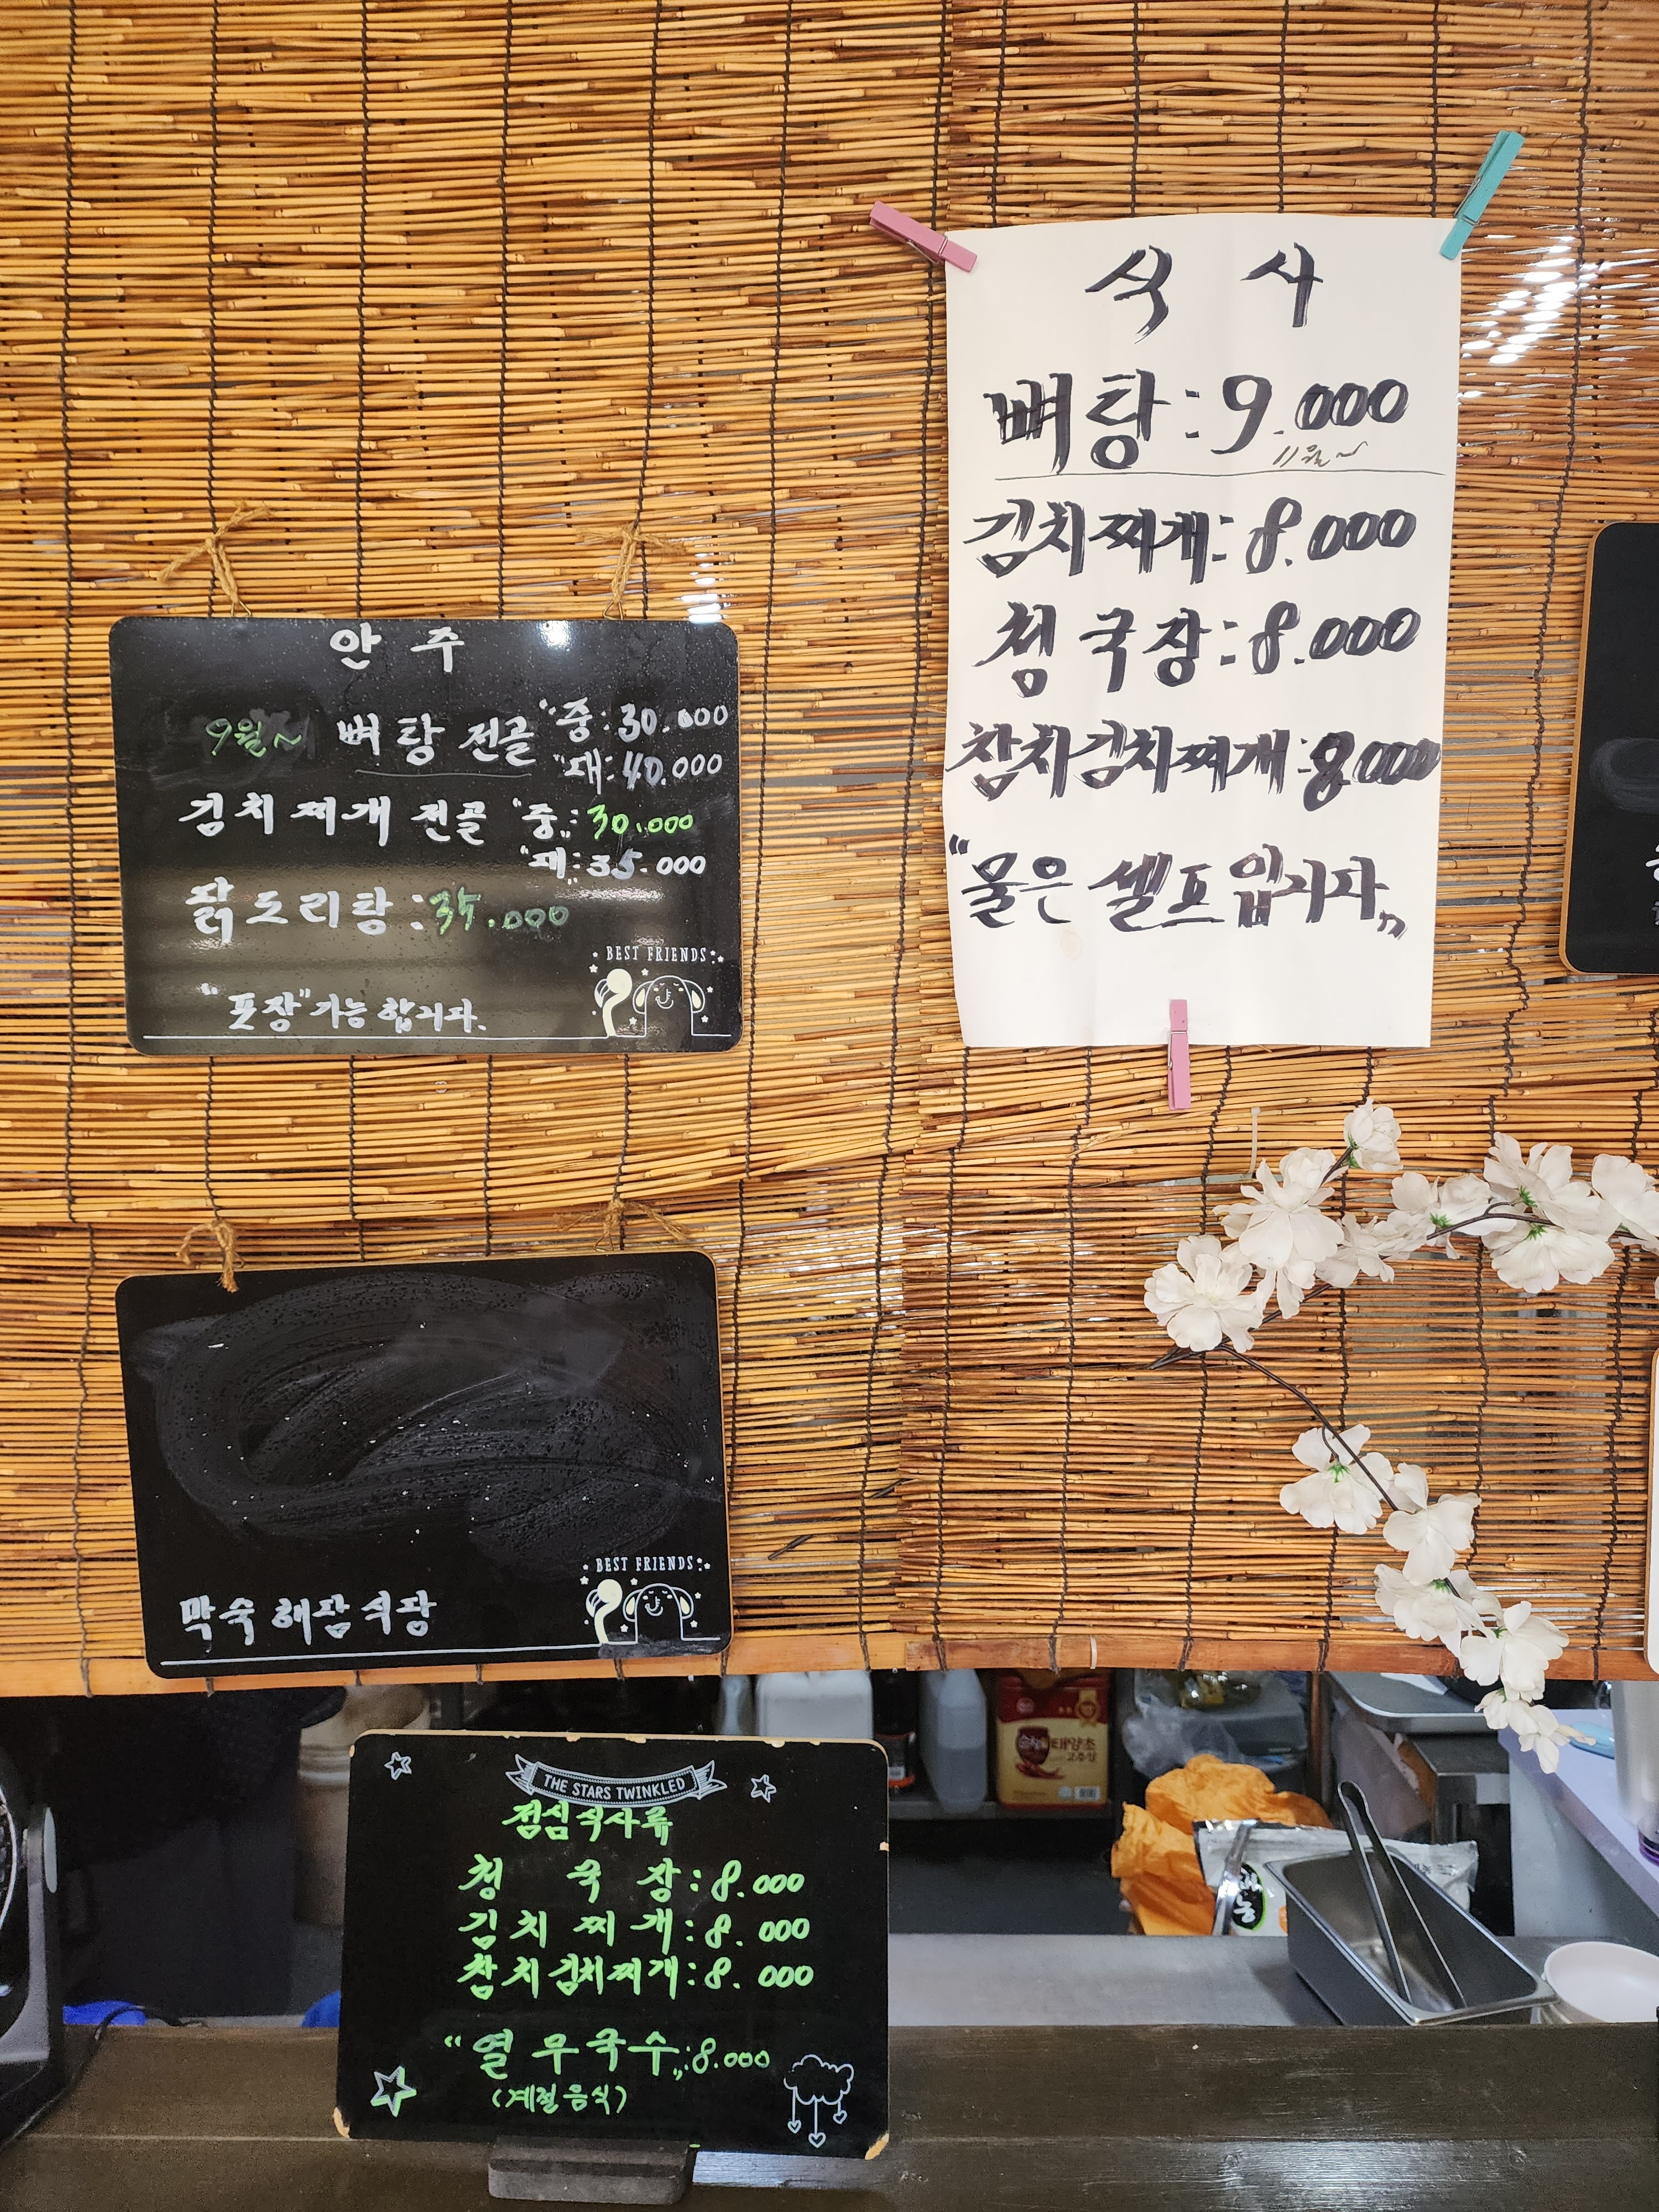 식 사
뼈탕: 9.000
11월~
김치찌개: 8.000
청국장: 8.000
참치김치찌개: 8.000
"물은 셀프입니다"
안 주
9월~ 뼈탕 전골 "중: 30.000
"대: 40.000
김치찌개 전골 "중": 30.000
"대": 35.000
닭도리탕: 35.000
"포장" 가능합니다.
BEST FRIENDS
BEST FRIENDS
THE STARS TWINKLED
점심식사류
청 국 장: 8.000
김 치 찌 개: 8.000
참치김치찌개: 8.000
"열무국수": 8.000
(계절음식)
태양초
고추장